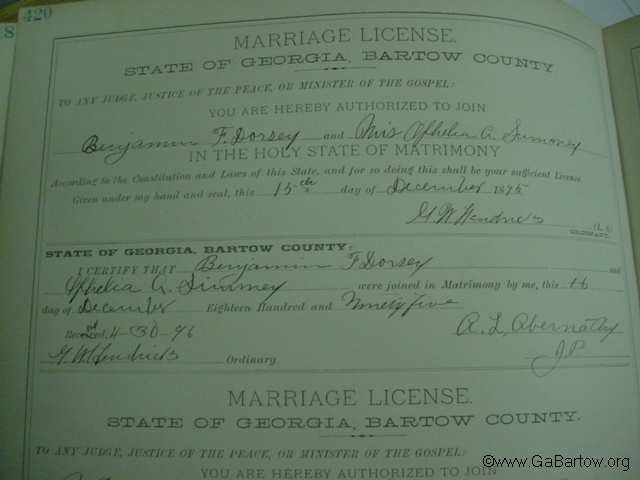 420
8
MARRIAGE LICENSE.
STATE OF GEORGIA, BARTOW COUNTY
TO ANY JUDGE, JUSTICE OF THE PEACE, OR MINISTER OF THE GOSPEL:
YOU ARE HEREBY AUTHORIZED TO JOIN
Benjamin F. Dorsey and Miss Ophelia A. Summey
IN THE HOLY STATE OF MATRIMONY
According to the Constitution and Laws of this State, and for so doing this shall be your sufficient License.
Given under my hand and seal, this 15th day of December 1895
G. W. Hendricks (L.S.)
ORDINARY.
STATE OF GEORGIA, BARTOW COUNTY:
I CERTIFY THAT Benjamin F Dorsey and
Ophelia A. Summey were joined in Matrimony by me, this 16
day of December Eighteen Hundred and Ninety five
4-30-96 A. L. Abernathy
G. W. Hendricks Ordinary J.P.
MARRIAGE LICENSE.
STATE OF GEORGIA, BARTOW COUNTY.
TO ANY JUDGE, JUSTICE OF THE PEACE, OR MINISTER OF THE GOSPEL:
YOU ARE HEREBY AUTHORIZED TO JOIN
©www.GaBartow.org